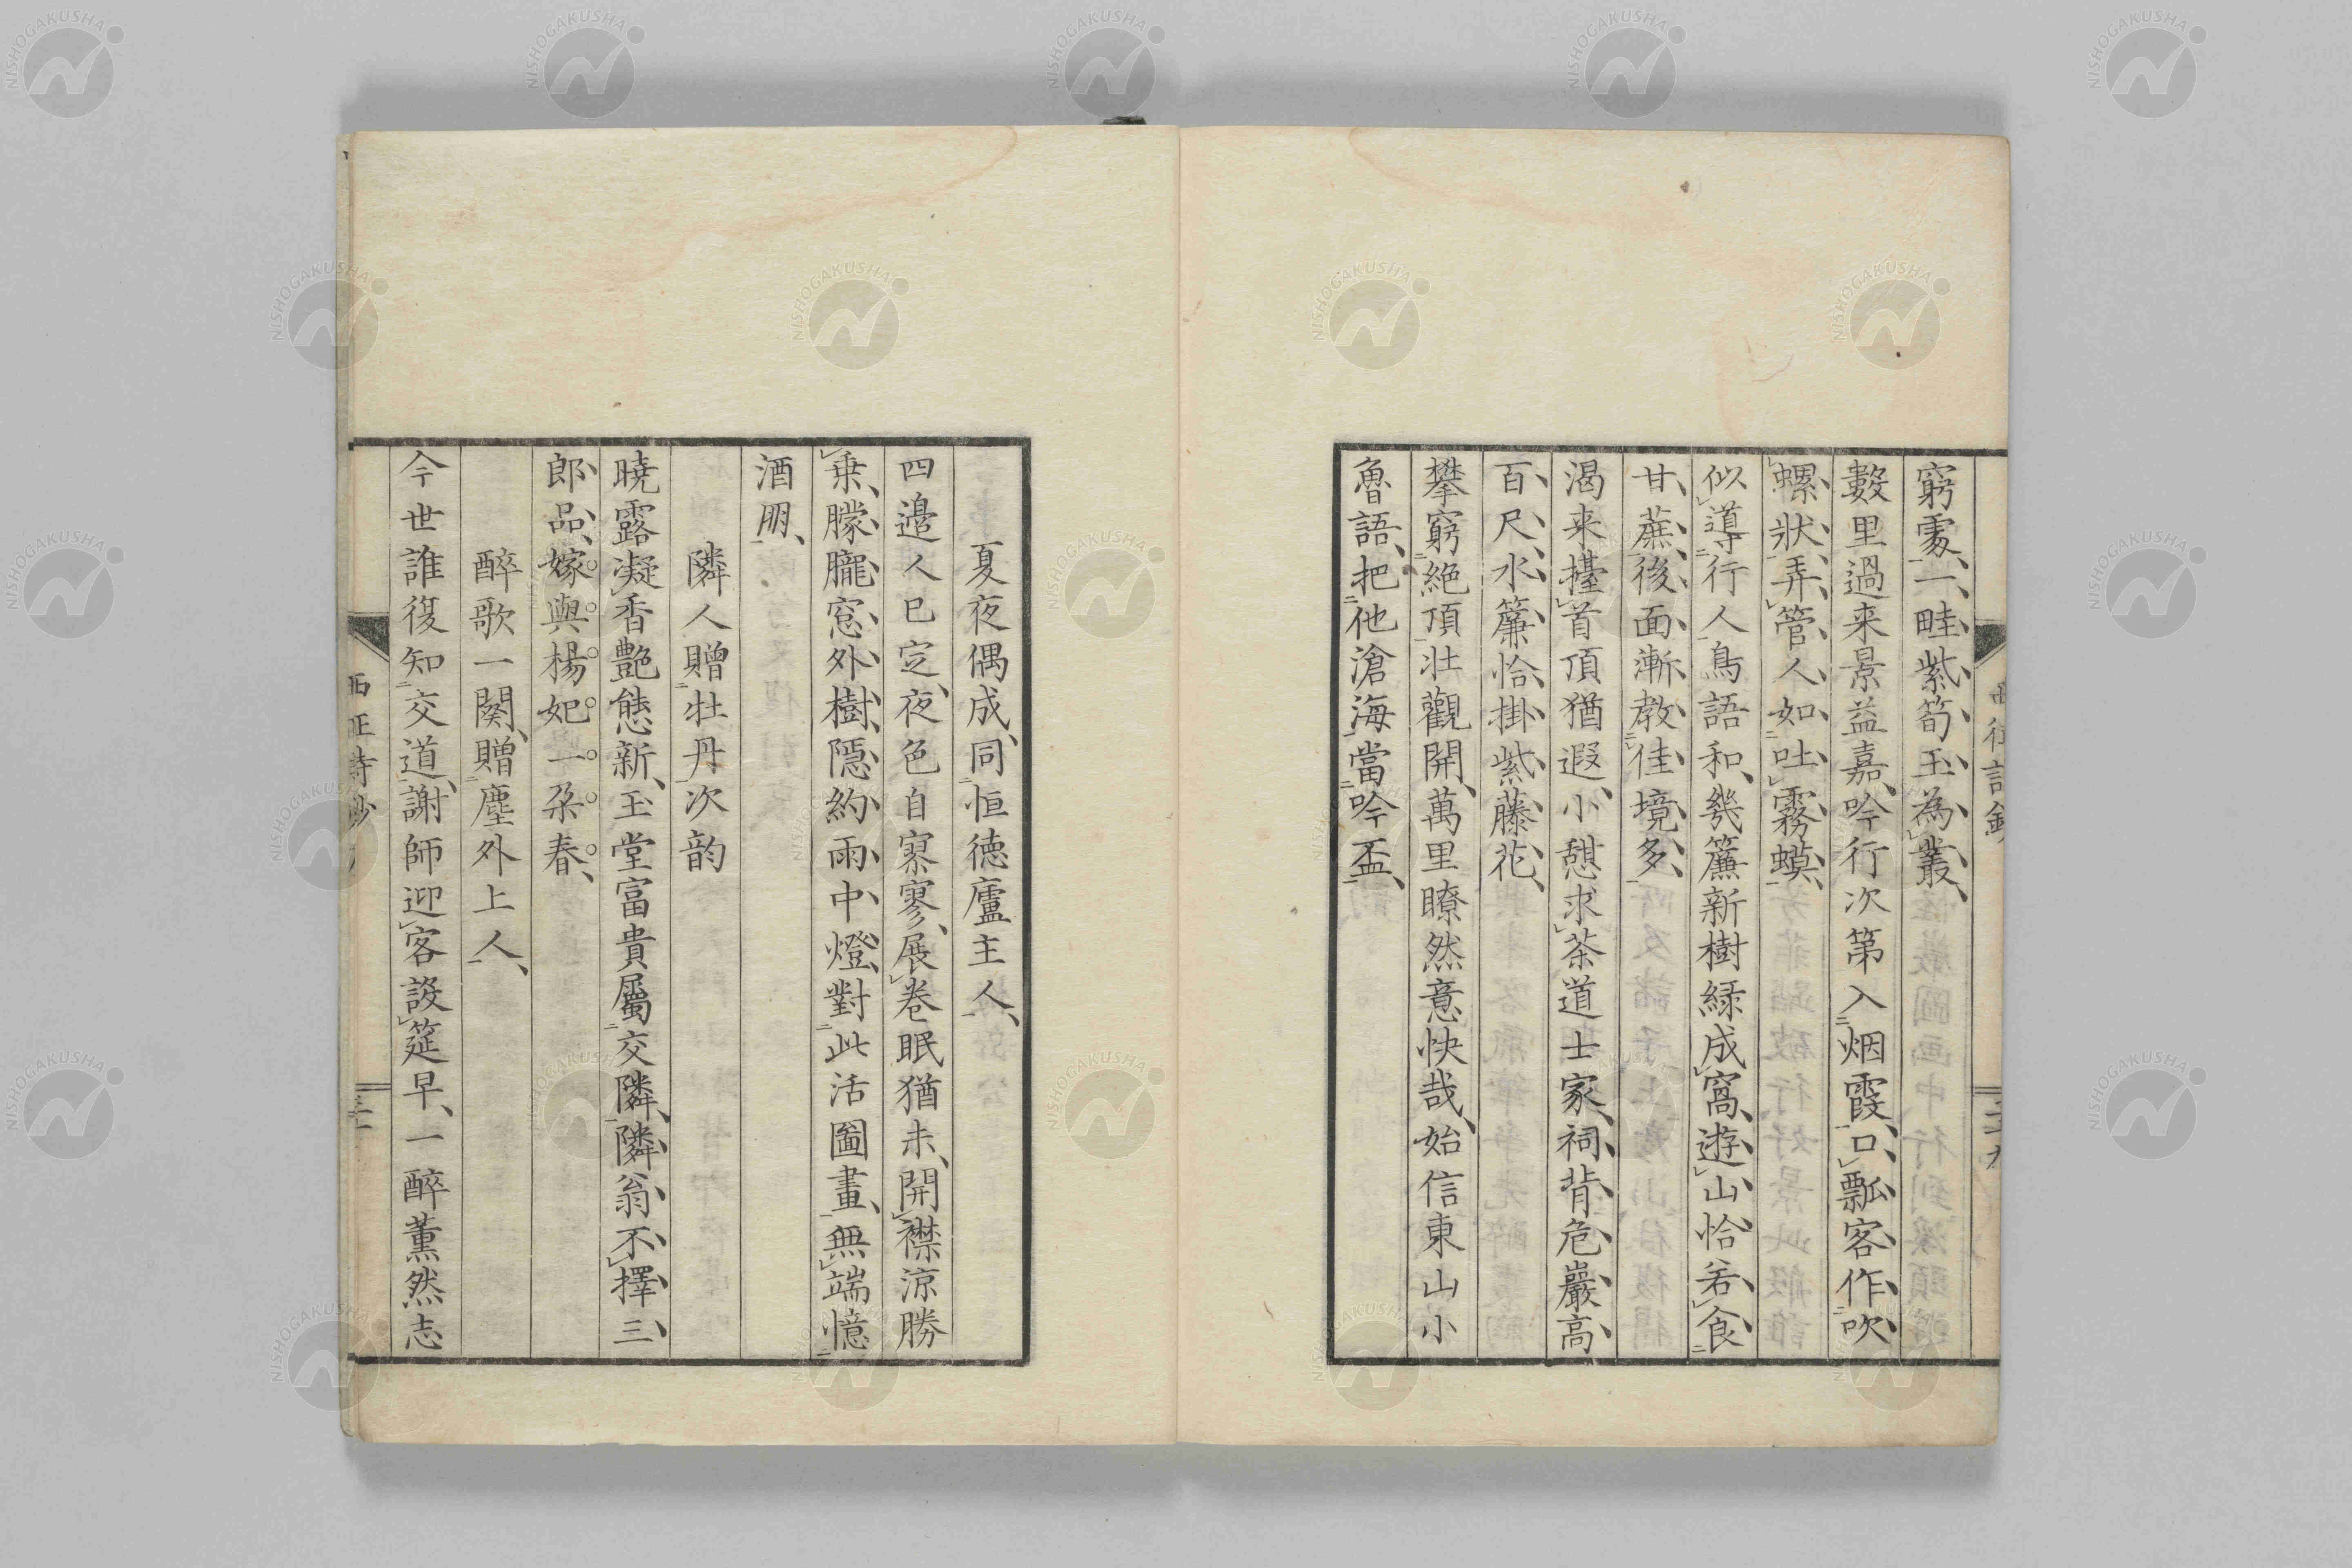 窮處、一畦紫筍玉為叢、
數里過来景益嘉、吟行次第入烟霞、口瓢客作吹
螺狀、弄管人如吐霧蟆、
似導行人鳥語和、幾簾新樹緑成窩、遊山恰若食
甘蔗、後面漸教佳境多、
渇来擡首頂猶遐、小憩求茶道士家、祠背危巖高
百尺、水簾恰掛紫藤花、
攀窮絶頂壮觀開、萬里瞭然意快哉、始信東山小
魯語、把他滄海當吟盃、
夏夜偶成、同恒徳廬主人、
四邉人已定、夜色自寥寥、展卷眠猶未、開襟涼勝
乗、朦朧窓外樹、隠約雨中燈、對此活圖畫、無端憶
酒朋、
隣人贈牡丹次韵
曉露凝香艶態新、玉堂富貴屬交隣、隣翁不擇三
郎品、嫁與楊妃一朶春、
醉歌一闋、贈塵外上人、
今世誰復知交道、謝師迎客設筵早、一醉薫然志
NISHOGAKUSHA